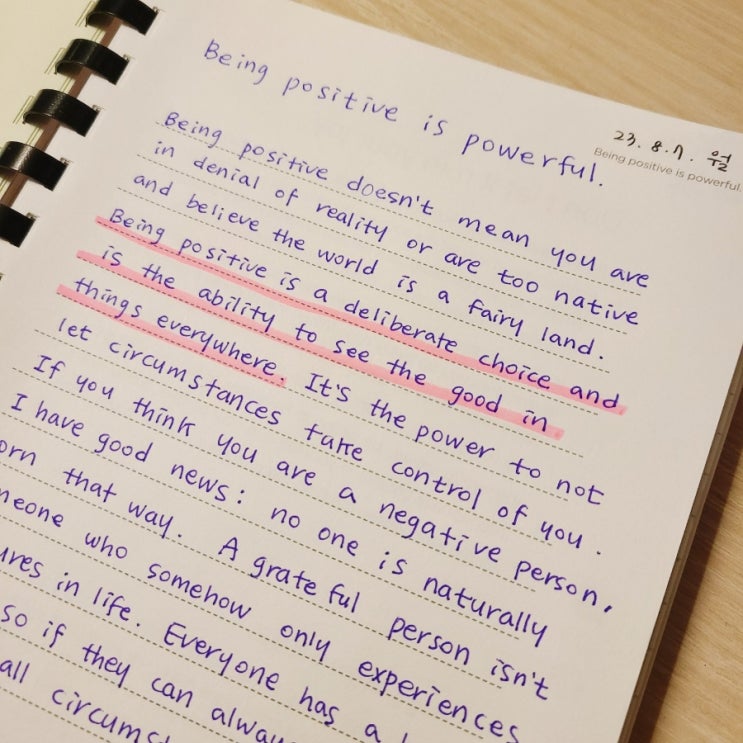 Being positive is powerful.
23. 8. 7. 월
Being positive is powerful.
Being positive doesn't mean you are
in denial of reality or are too native
and believe the world is a fairy land.
Being positive is a deliberate choice and
is the ability to see the good in
things everywhere. It's the power to not
let circumstances take control of you.
If you think you are a negative person,
I have good news: no one is naturally
orn that way. A grateful person isn't
meone who somehow only experiences
ures in life. Everyone has a
so if they can alway
all circumst